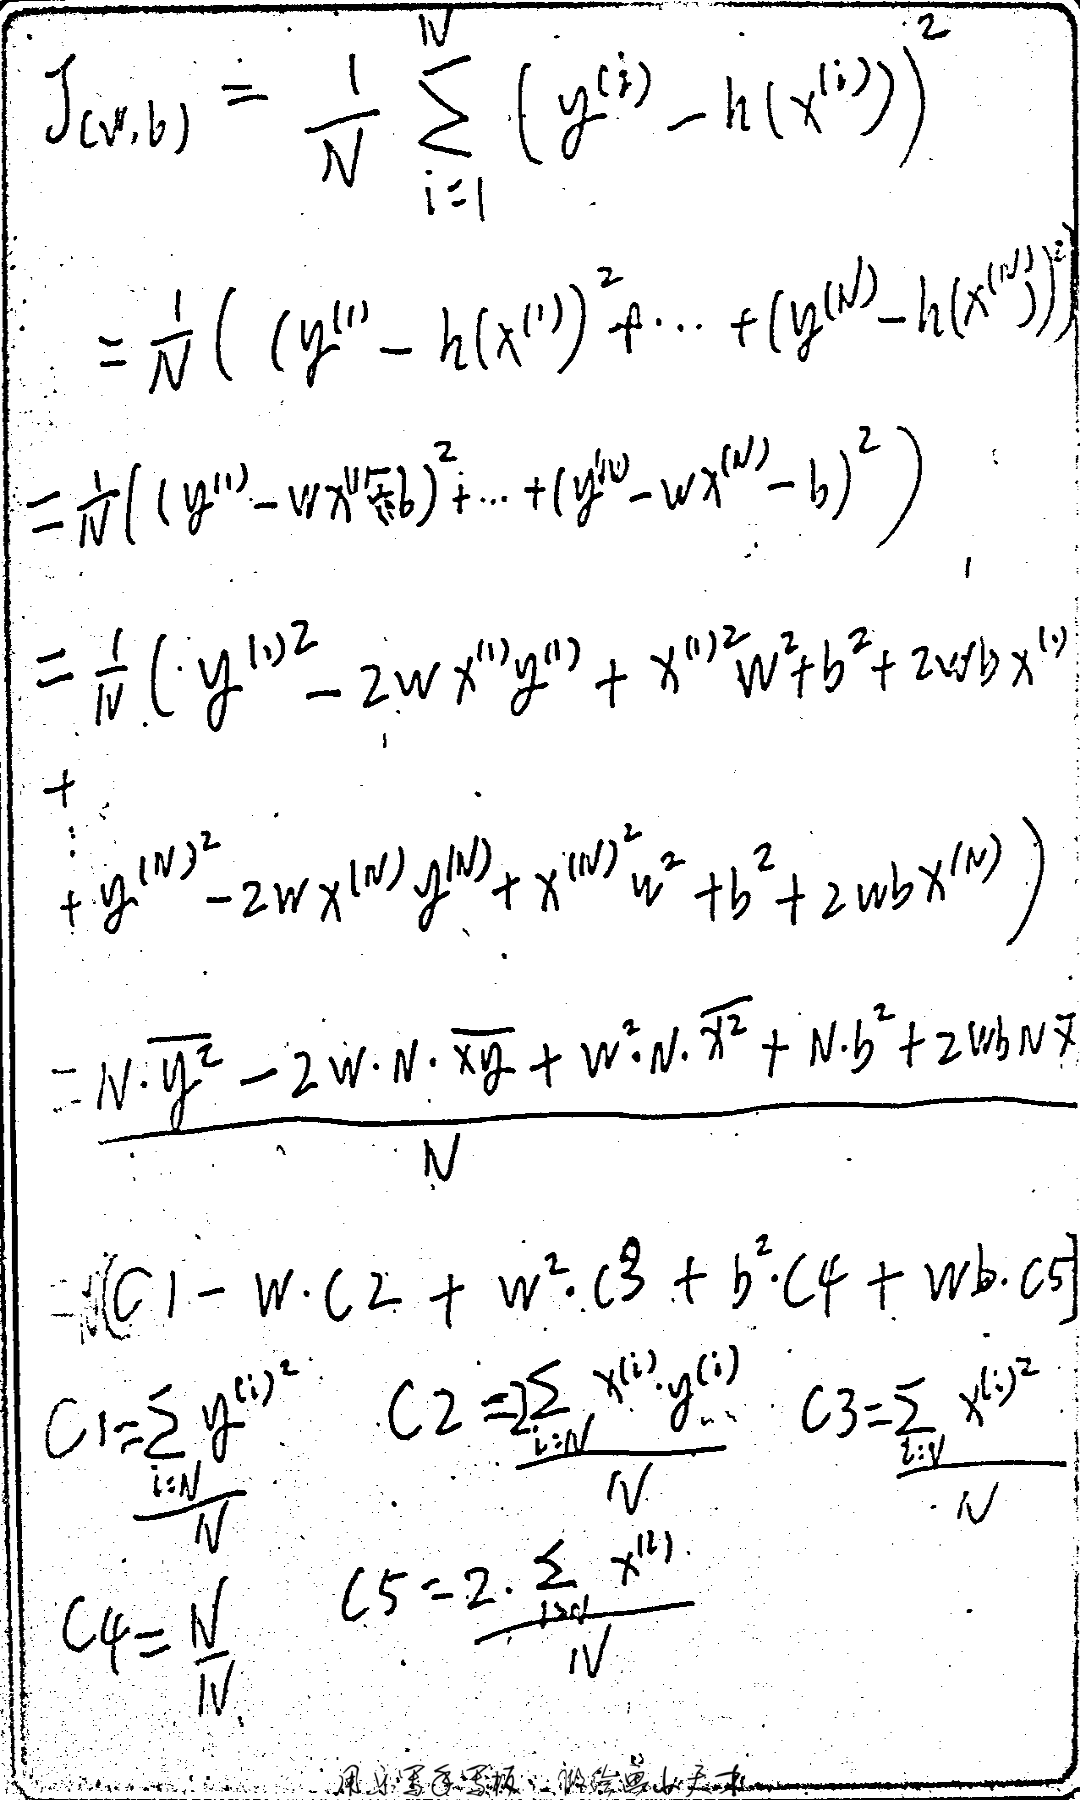 J(w,b) = 1/N N∑i=1 (y^(i) - h(x^(i)))^2
= 1/N ( (y^(1) - h(x^(1))^2 + ... + (y^(N) - h(x^(N)))^2)
= 1/N ( (y^(1) - wx^(1) - b)^2 + ... + (y^(N) - wx^(N) - b)^2 )
= 1/N ( y^(1)2 - 2wx^(1)y^(1) + x^(1)2 w^2 + b^2 + 2wbx^(1)
+
⋮
+ y^(N)2 - 2wx^(N)y^(N) + x^(N)2 w^2 + b^2 + 2wbx^(N) )
= N·y̅²̅ - 2w·N·x̅y̅ + w²·N·x̅²̅ + N·b² + 2wbNx̅
N
= (C1 - w·C2 + w²·C3 + b²·C4 + wb·C5]
C1 = ∑i=N y^(i)2 / N C2 = 2∑i=N x^(i)·y^(i) / N C3 = ∑i=N x^(i)2 / N
C4 = N/N C5 = 2·∑i=N x^(i) / N